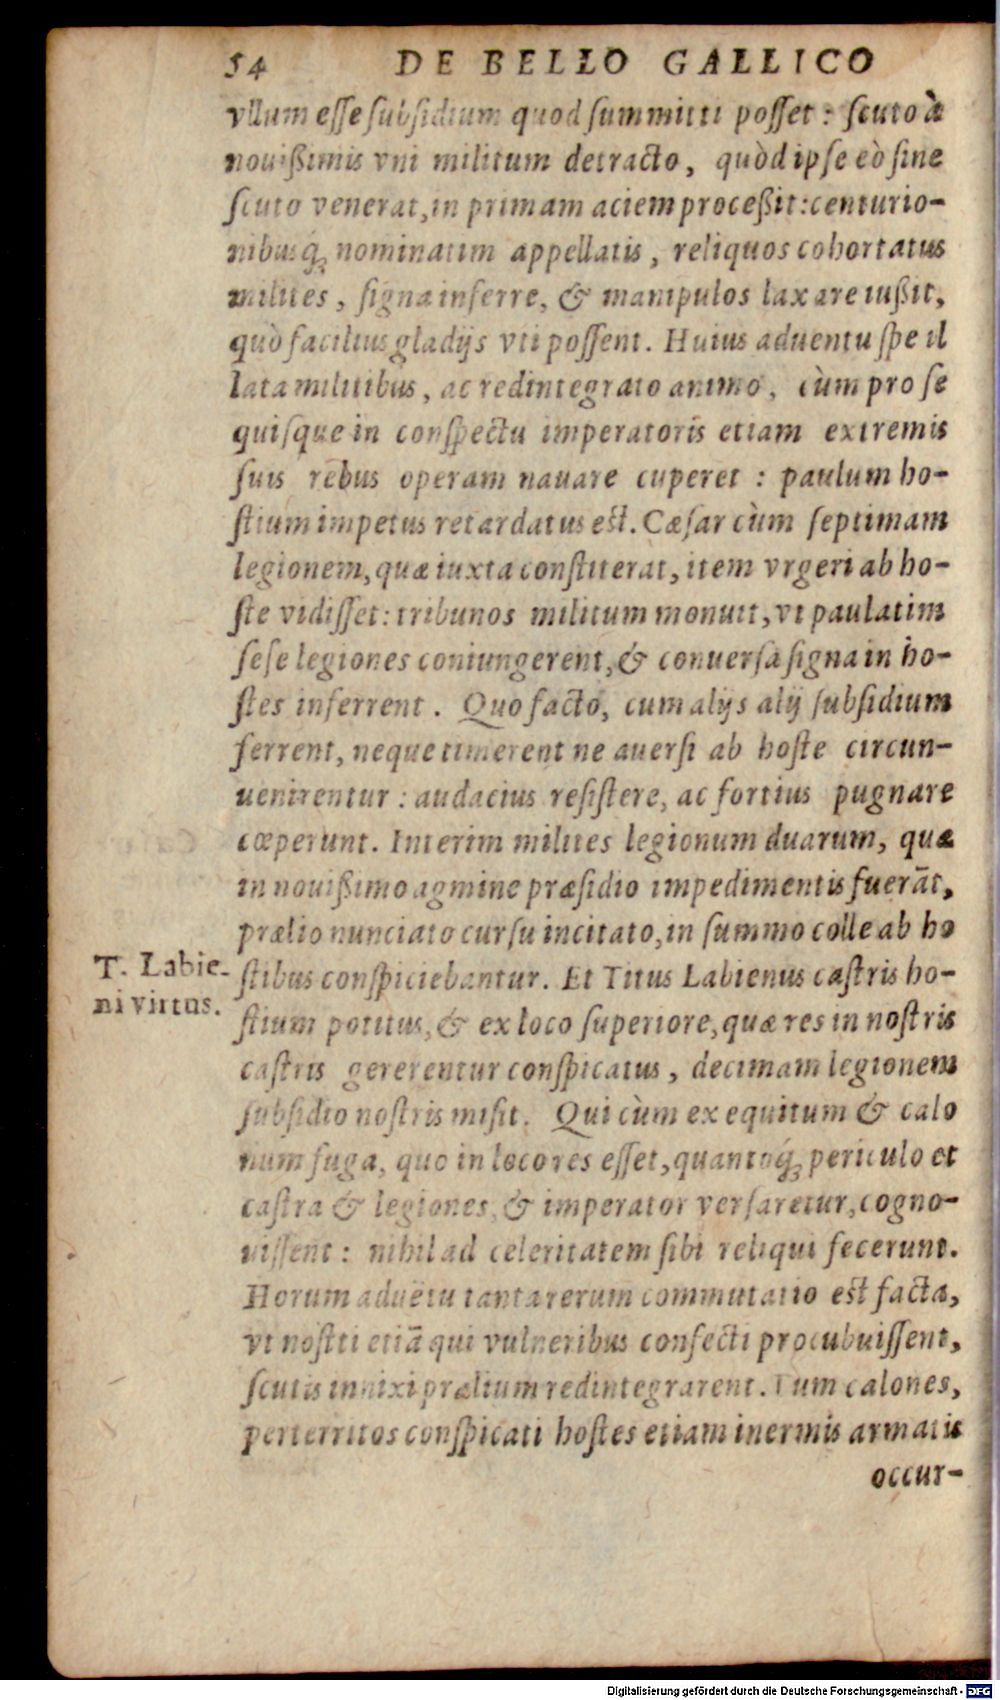 54 DE BELLO GALLICO
vllum esse subsidium quod summitti posset: scuto à
nouißimis vni militum detracto, quòd ipse eò sine
scuto venerat, in primam aciem proceßit: centurio-
nibusq́; nominatim appellatis, reliquos cohortatus
milites, signa inferre, & manipulos laxare iußit,
quò facilius gladijs vti possent. Huius aduentu spe il
lata militibus, ac redintegrato animo, cùm pro se
quisque in conspectu imperatoris etiam extremis
suis rebus operam nauare cuperet: paulum ho-
stium impetus retardatus est. Cæsar cùm septimam
legionem, quæ iuxta constiterat, item vrgeri ab ho-
ste vidisset: tribunos militum monuit, vt paulatim
sese legiones coniungerent, & conuersa signa in ho-
stes inferrent. Quo facto, cum alijs alij subsidium
ferrent, neque timerent ne auersi ab hoste circun-
uenirentur: audacius resistere, ac fortius pugnare
cœperunt. Interim milites legionum duarum, quæ
in nouißimo agmine præsidio impedimentis fuerāt,
prælio nunciato cursu incitato, in summo colle ab ho
stibus conspiciebantur. Et Titus Labienus castris ho-
T. Labie-
ni virtus.
stium potitus, & ex loco superiore, quæ res in nostris
castris gererentur conspicatus, decimam legionem
subsidio nostris misit. Qui cùm ex equitum & calo
num fuga, quo in loco res esset, quantoq́; periculo et
castra & legiones, & imperator versaretur, cogno-
uissent: nihil ad celeritatem sibi reliqui fecerunt.
Horum aduētu tanta rerum commutatio est facta,
vt nostti etiā qui vulneribus confecti procubuissent,
scutis innixi prælium redintegrarent. Tum calones,
perterritos conspicati hostes etiam inermis armatis
occur-
Digitalisierung gefördert durch die Deutsche Forschungsgemeinschaft - DFG